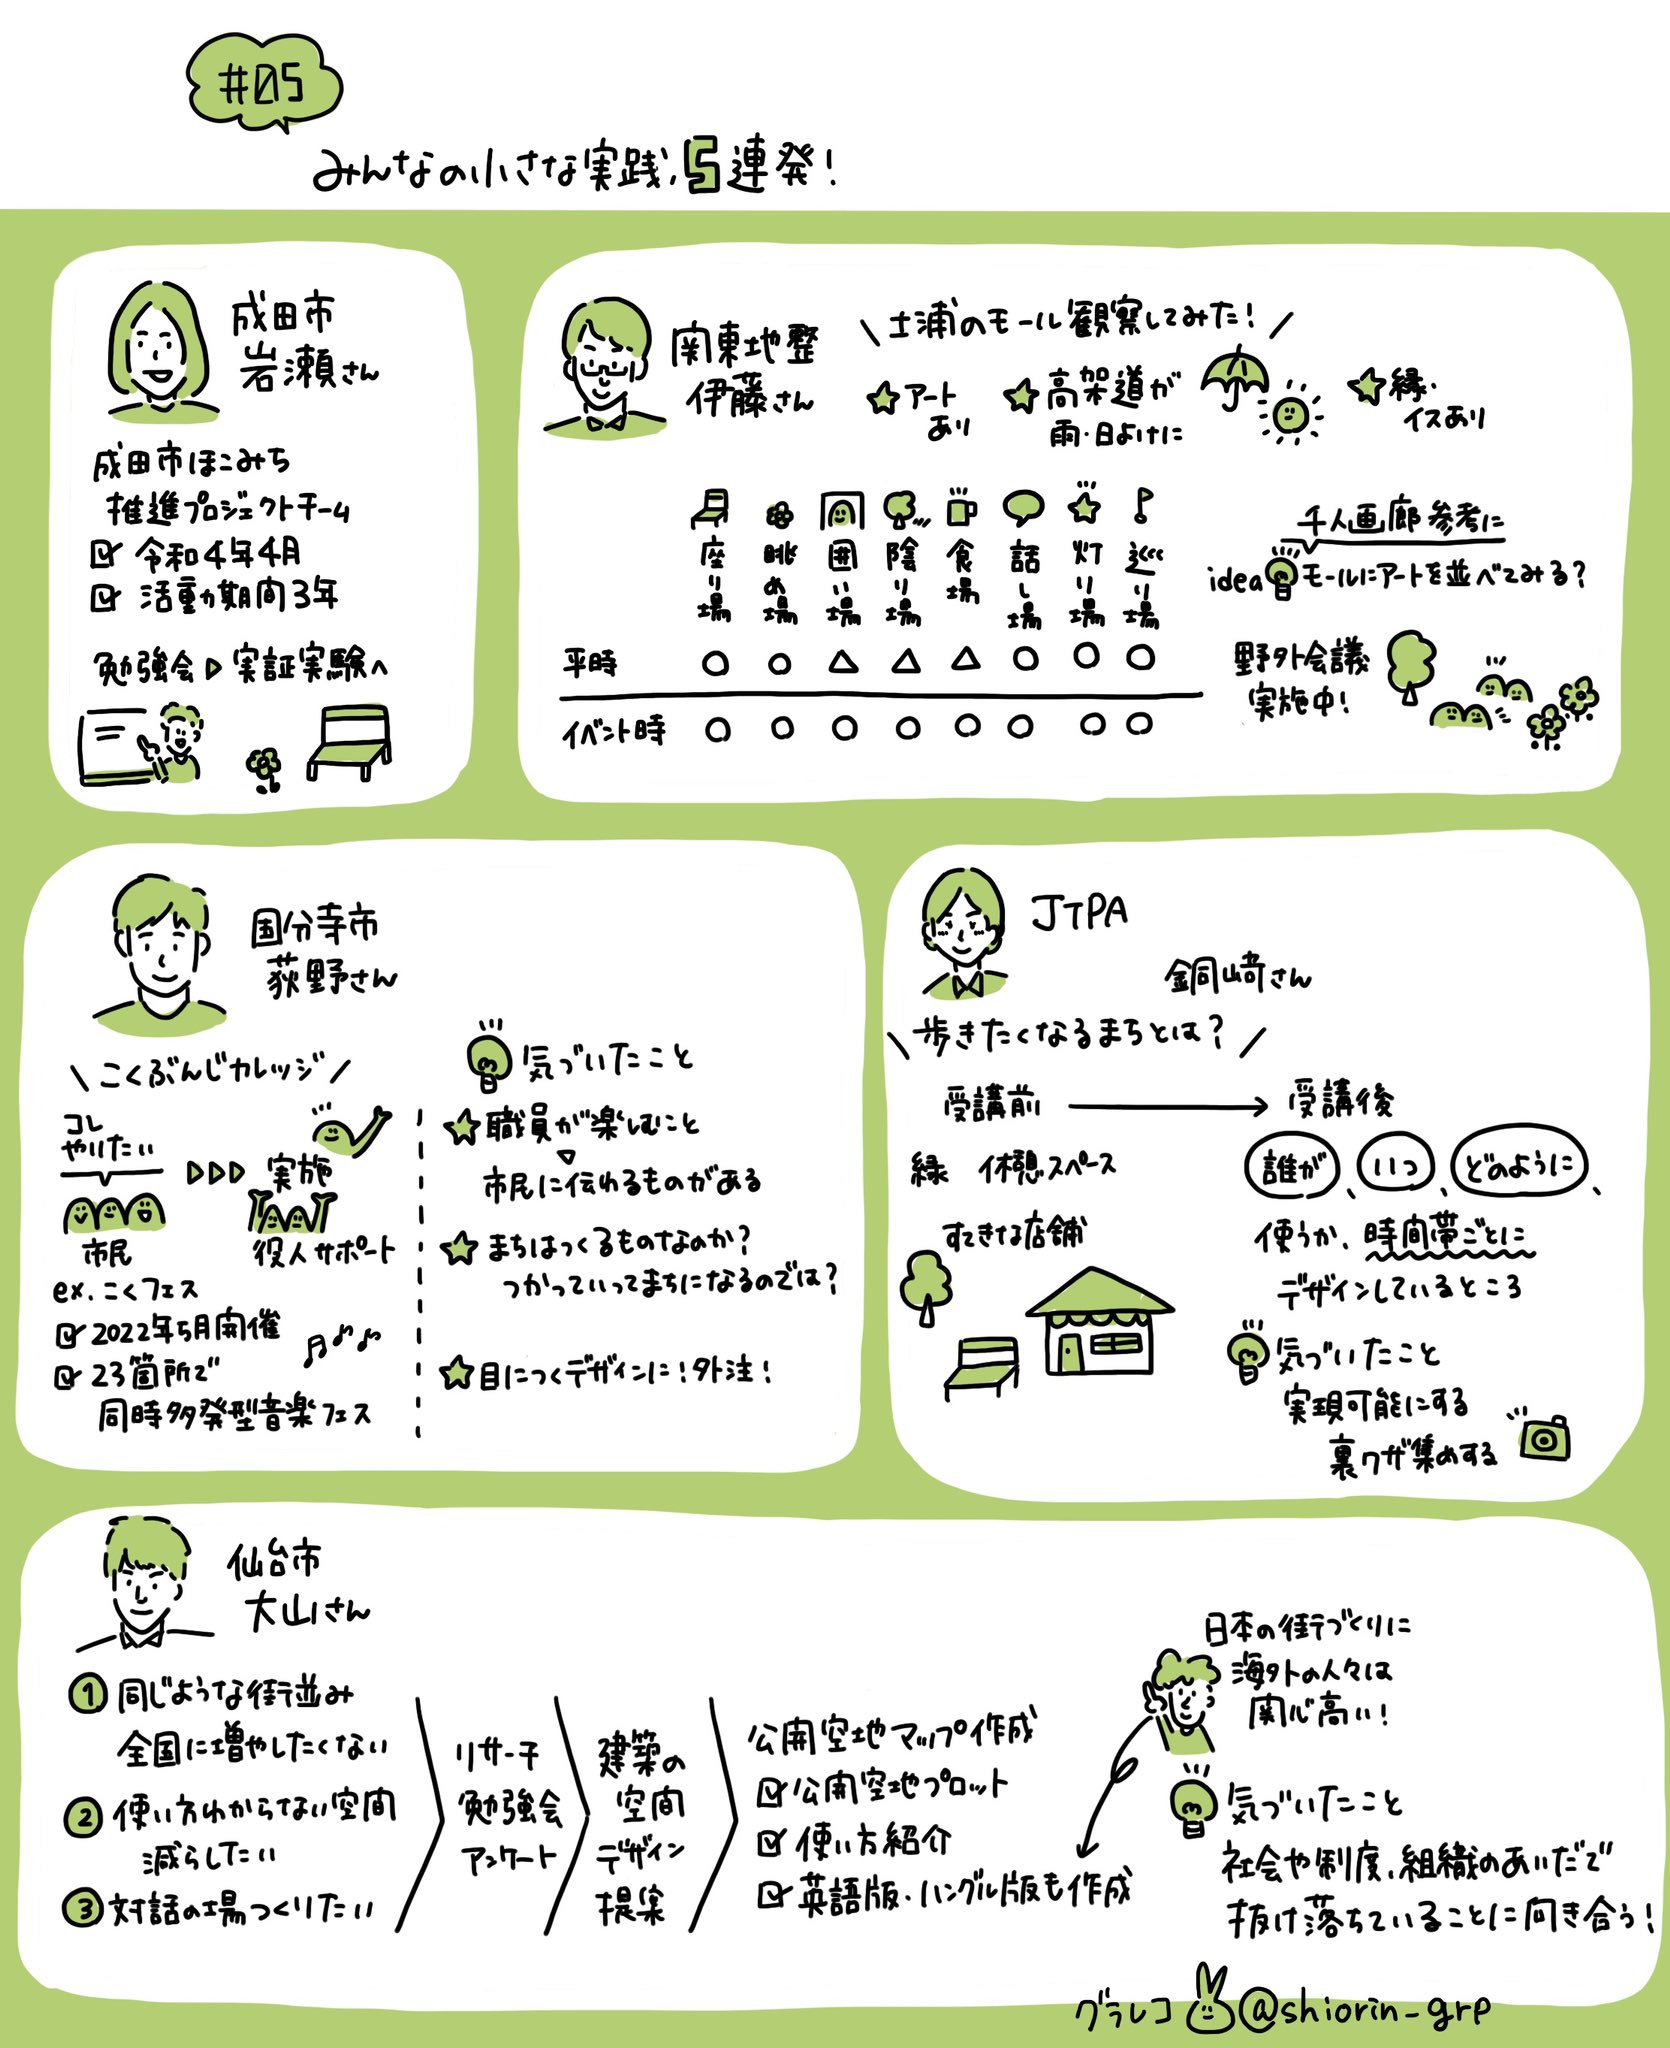 #05
みんなの小さな実践,5連発!
成田市
岩瀬さん
成田市ほこみち
推進プロジェクトチーム
令和4年4月
活動期間3年
勉強会▷実証実験へ
関東地整
伊藤さん
土浦のモール観察してみた!
アート
あり
高架道が
雨・日よけに
縁・
イスあり
座り場
眺め場
囲い場
陰り場
食場
話し場
灯り場
巡り場
平時 ○ ○ △ △ △ ○ ○ ○
イベント時 ○ ○ ○ ○ ○ ○ ○ ○
千人画廊参考に
idea モールにアートを並べてみる?
野外会議
実施中!
国分寺市
荻野さん
こくぶんじカレッジ
コレ
やりたい
▷▷▷ 実施
市民
役人サポート
ex. こくフェス
2022年5月開催
23箇所で
同時多発型音楽フェス
気づいたこと
職員が楽しむこと
市民に伝わるものがある
まちはつくるものなのか?
つかっていってまちになるのでは?
目につくデザインに!外注!
JTPA
銅崎さん
歩きたくなるまちとは?
受講前 → 受講後
緑 休憩スペース
すてきな店舗
誰が、いつ、どのように、
使うか、時間帯ごとに
デザインしているところ
気づいたこと
実現可能にする
裏ワザ集めする
仙台市
大山さん
① 同じような街並み
全国に増やしたくない
② 使い方わからない空間
減らしたい
③ 対話の場つくりたい
リサーチ
勉強会
アンケート
建築の
空間
デザイン
提案
公開空地マップ作成
公開空地プロット
使い方紹介
英語版・ハングル版も作成
日本の街づくりに
海外の人々は
関心高い!
気づいたこと
社会や制度、組織のあいだで
抜け落ちていることに向き合う!
グラレコ @shiorin_grp